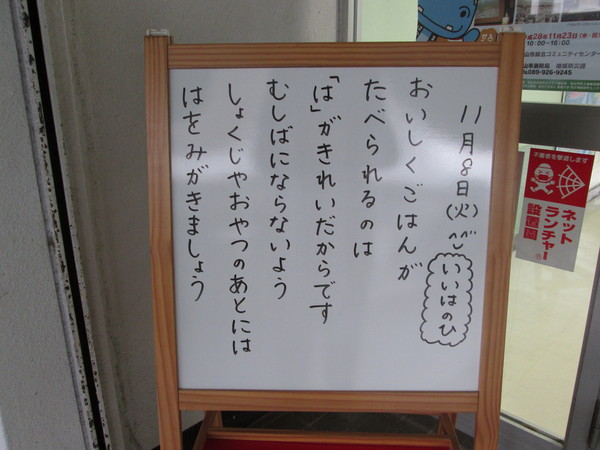 11月8日(火)
いいはのひ
おいしくごはんが
たべられるのは
「は」がきれいだからです
むしばにならないよう
しょくじやおやつのあとには
はをみがきましょう
成28年11月23日
10:00~16:00
089-926-9245
不審者を撃退します
ネット
ランチャー
設置園